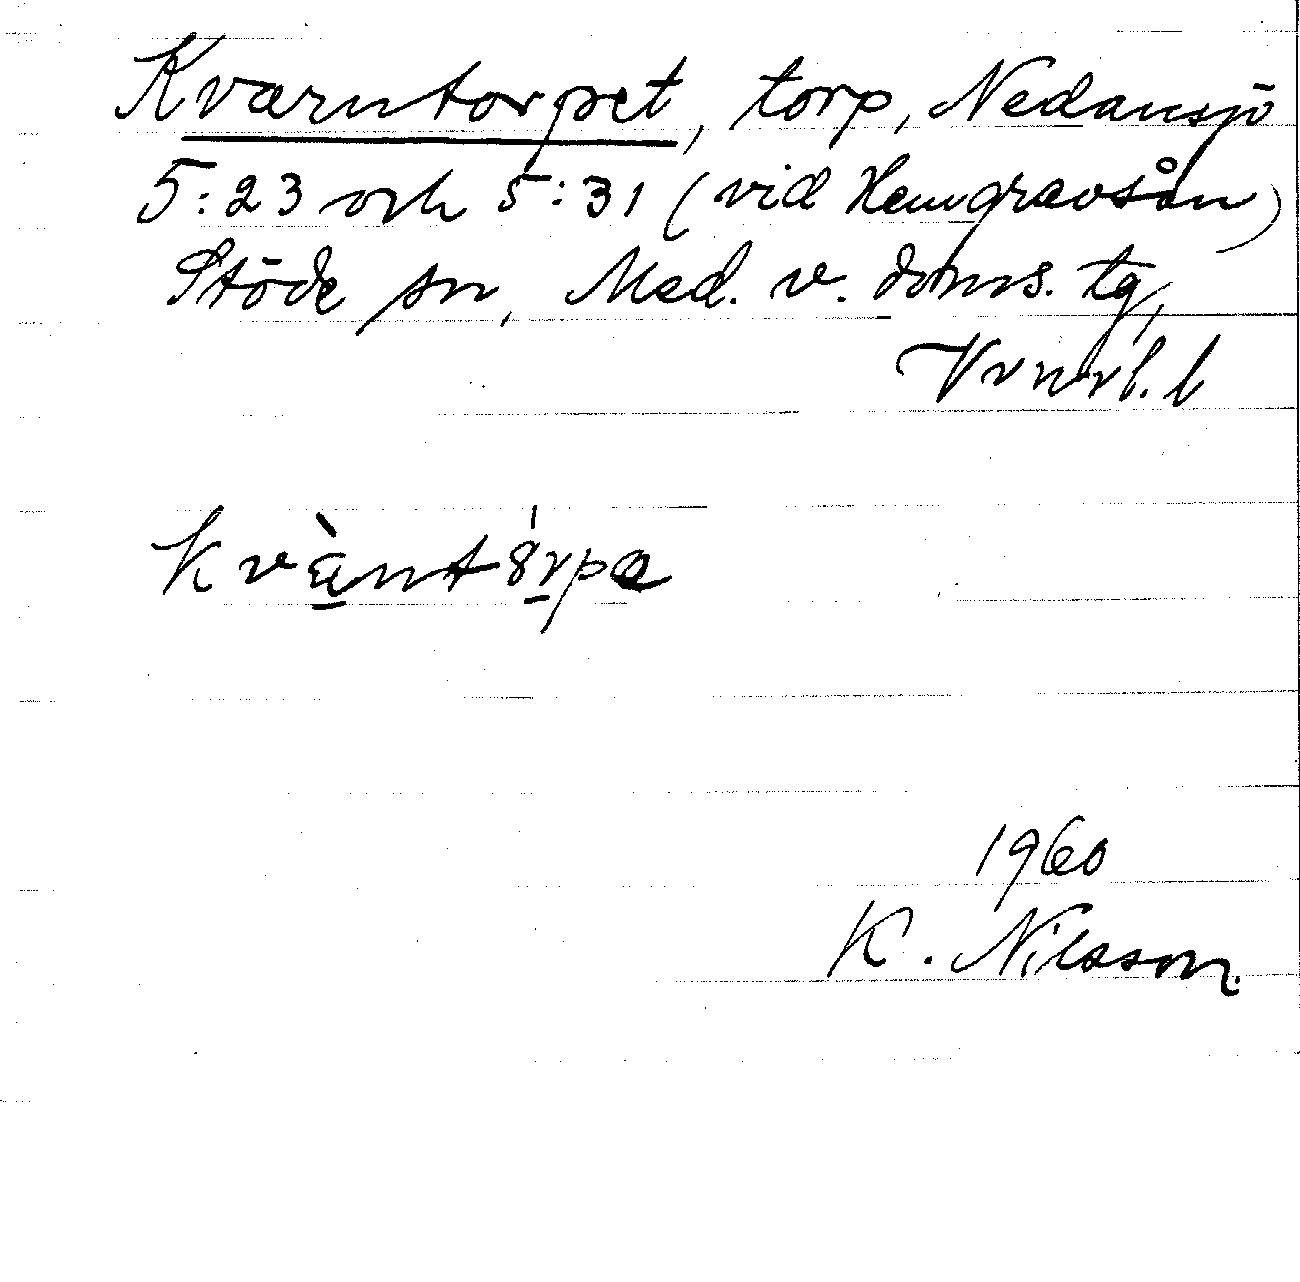 Kvarntorpet, torp, Nedansjö
5:23 och 5:31 (vid Hemgravsån)
Stöde sn, Med. v. doms. tg,
Vvnrl. l
1960
K. Nilsson.